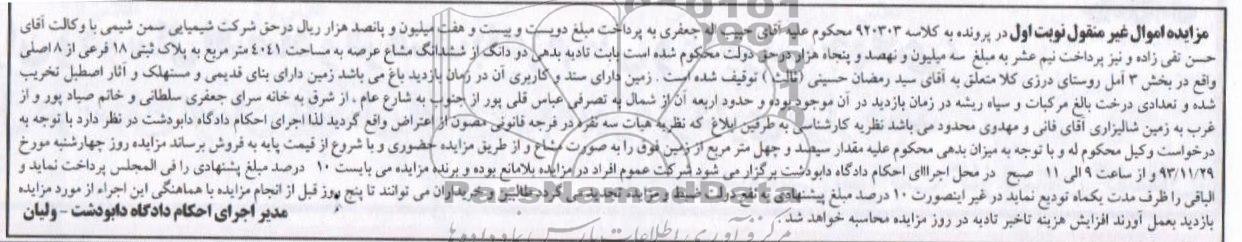 مزایده اموال غیر منقول نوبت اول در پرونده به کلاسه ۹۲۰۳۰۳ محکوم علیه آقای حبیب له جعفری به پرداخت مبلغ دویست و بیست و هفت میلیون و پانصد هزار ریال درحق شرکت شیمیایی سمن شیمی با وکالت آقای
حسن تقی زاده و نیز پرداخت نیم عشر به مبلغ سه میلیون و نهصد و پنجاه هزار درحق دولت محکوم شده است بابت تادیه بدهی دو دانگ از ششدانگ مشاع عرصه به مساحت ۴۰۴۱ متر مربع به پلاک ثبتی ۱۸ فرعی از ۸ اصلی
واقع در بخش ۳ آمل روستای درزی کلا متعلق به آقای سید رمضان حسینی (ثالث) توقیف شده است . زمین دارای سند و کاربری آن در زمان بازدید باغ می باشد زمین دارای بنای قدیمی و مستهلک و آثار اصطبل تخریب
شده و تعدادی درخت بالغ مرکبات و سیاه ریشه در زمان بازدید در آن موجود بوده و حدود اربعه آن از شمال به تصرفی عباس قلی پور از جنوب به شارع عام ، از شرق به خانه سرای جعفری سلطانی و خانم صیاد پور و از
غرب به زمین شالیزاری آقای فانی و مهدوی محدود می باشد نظریه کارشناسی به طرفین ابلاغ که نظریه هیات سه نفره در فرجه قانونی مصون از اعتراض واقع گردید لذا اجرای احکام دادگاه دابودشت در نظر دارد با توجه به
درخواست وکیل محکوم له و با توجه به میزان بدهی محکوم علیه مقدار سیصد و چهل متر مربع از زمین فوق را به صورت مشاع و از طریق مزایده حضوری و با شروع از قیمت پایه به فروش برساند مزایده روز چهارشنبه مورخ
۹۳/۱۱/۲۹ و از ساعت ۹ الی ۱۱ صبح در محل اجراای احکام دادگاه دابودشت برگزار می شود شرکت عموم افراد در مزایده بلامانع بوده و برنده مزایده می بایست ۱۰ درصد مبلغ پشنهادی را فی المجلس پرداخت نماید و
الباقی را ظرف مدت یکماه تودیع نماید در غیر اینصورت ۱۰ درصد مبلغ پیشنهادی به نفع دولت ضبط و مزایده تجدید می گردد طالبین و خریداران می توانند تا پنج روز قبل از انجام مزایده با هماهنگی این اجراء از مورد مزایده
بازدید بعمل آورند افزایش هزینه تاخیر تادیه در روز مزایده محاسبه خواهد شد .
مدیر اجرای احکام دادگاه دابودشت - ولیان
ParsNamadData